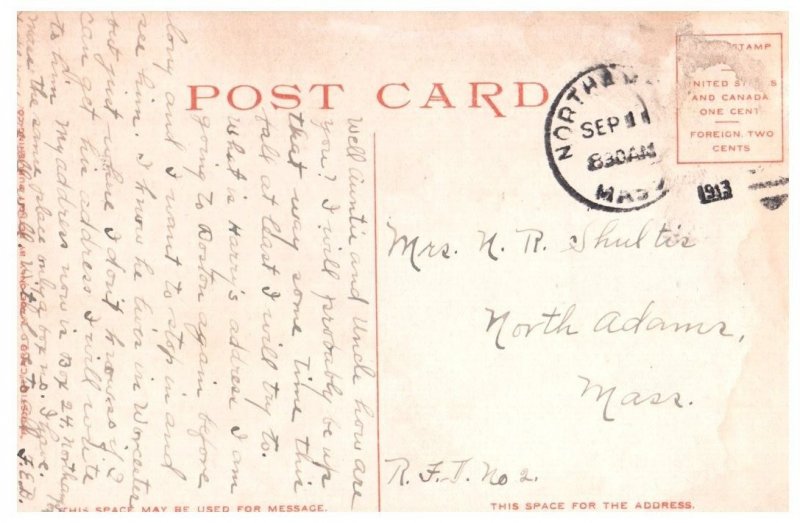 POST CARD
STAMP
UNITED STATES
AND CANADA
ONE CENT
FOREIGN, TWO
CENTS
SEP 11
830AM
MASS
1913
Well Auntie and Uncle how are
you? I will probably be up
that way some time this
fall at least I will try to.
What is Harry's address I am
going to Boston again before
long and I want to stop in and
see him. I know he lives in Worcester
but just where I don't know so if I
can get his address I will write
to him My address now is Box 24, Northampton
more the same place only a box no. I have.
With love to all F.E.B.
Mrs. N. R. Shultis
North Adams,
Mass.
R. F. D. No 2.
THIS SPACE MAY BE USED FOR MESSAGE.
THIS SPACE FOR THE ADDRESS.